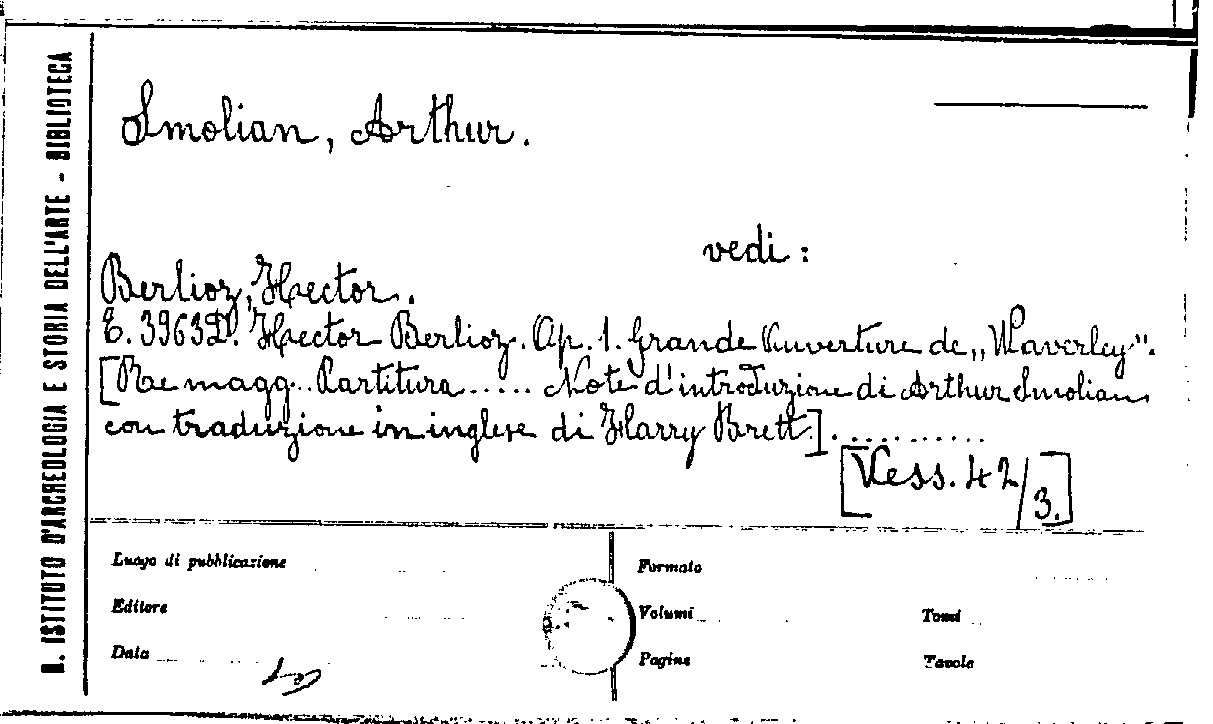 R. ISTITUTO D'ARCHEOLOGIA E STORIA DELL'ARTE - BIBLIOTECA
Smolian, Arthur.
vedi :
Berlioz, Hector.
E. 3963D. Hector Berlioz. Op. 1. Grande Ouverture de „Waverley".
[Re magg.. Partitura ..... Note d'introduzione di Arthur Smolian
con traduzione in inglese di Harry Brett.]...........
[Vess. 42/3.]
Luogo di pubblicazione
Formato
Editore
Volumi
Tomi
Data
Pagine
Tavole